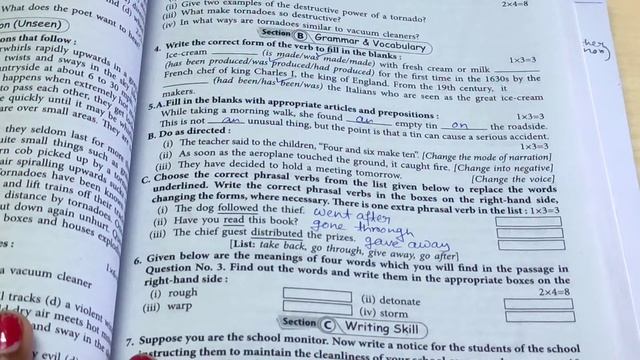 What does the poet want to
on (Unseen)
ons that follow :
rwhirls rapidly upwards in a
twists and sways in the
ntryside at about 6 to 30
happens when extremely ho
to pass each other, they get
e quickly until it may be
are over small areas. They
they seldom last for more
uite small things such as
rn cob picked up by a
air spiralling upward,
ornadoes have been know
and lift trains off their
distance by tornadoes
ut down again unhurt.
boxes and houses explo
es :
a vacuum cleaner
l tracks (d) a violent
dry air meets hot
and sway in the
y evil (d)
(ii) Give two examples of the destructive power of a tornado?
(iii) What makes tornadoes so destructive?
(iv) In what ways are tornadoes similar to vacuum cleaners?
2×4=8
Section B Grammar & Vocabulary
4. Write the correct form of the verb to fill in the blanks : 1×3=3
Ice-cream ____ (is made/was made/made) with fresh cream or milk ____
(has been produced/was produced/had produced) for the first time in the 1630s by the
French chef of king Charles I, the king of England. From the 19th century, it
____ (had been/has been/was) the Italians who are seen as the great ice-cream
makers.
5.A.Fill in the blanks with appropriate articles and prepositions : 1×3=3
While taking a morning walk, she found an empty tin on the roadside.
This is not an unusual thing, but the point is that a tin can cause a serious accident.
B. Do as directed : 1×3=3
(i) The teacher said to the children, "Four and six make ten". [Change the mode of narration]
(ii) As soon as the aeroplane touched the ground, it caught fire. [Change into negative]
(iii) They have decided to hold a meeting tomorrow. [Change the voice]
C. Choose the correct phrasal verbs from the list given below to replace the words
underlined. Write the correct phrasal verbs in the boxes on the right-hand side,
changing the forms, where necessary. There is one extra phrasal verb in the list : 1×3=3
(i) The dog followed the thief. went after
(ii) Have you read this book? gone through
(iii) The chief guest distributed the prizes. gave away
[List: take back, go through, give away, go after]
6. Given below are the meanings of four words which you will find in the passage in
Question No. 3. Find out the words and write them in the appropriate boxes on the
right-hand side : 2×4=8
(i) rough (ii) detonate
(iii) warp (iv) storm
Section C Writing Skill
7. Suppose you are the school monitor. Now write a notice for the students of the school
instructing them to maintain the cleanliness of your school